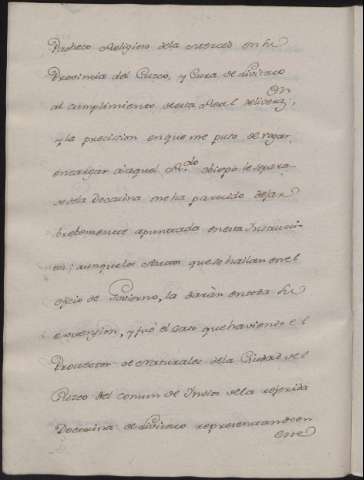 Pacheco Religioso dela merced en su
Provincia del Cuzco, y Cura de
al cumplimiento desta Real deliveraz.on,
y la precision en que me puso de rogar
encargar á aquel R.do obispo le separa-
se dela Doctrina me ha parecido dejar
brebemente apuntada en esta Instrucci-
on; aunque los Autos que se hallan en el
oficio de Govierno, la darán en toda su
extension, y fué el caso que haviendo el
Protector de Naturales dela Ciudad del
Cuzco del comun de Indios dela referida
Doctrina de representado en